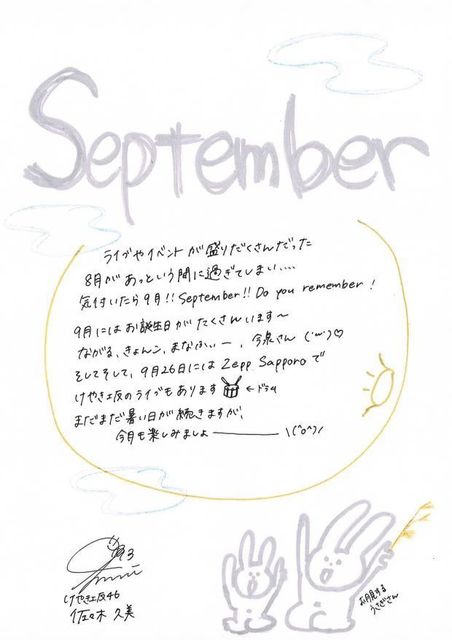 September
ライブやイベントが盛りだくさんだった
8月があっという間に過ぎてしまい....
気付いたら9月!! September!! Do you remember!
9月にはお誕生日がたくさんいます〜
ながる、きょんこ、まなふぃー、今泉さん (˙ω˙)♡
そしてそして、9月26日には Zepp Sapporo で
けやき坂のライブもあります ←ドラム
まだまだ暑い日が続きますが、
今月も楽しみましょ――― \(^o^)/
けやき坂46
佐々木 久美
お月見する
うさぎさん